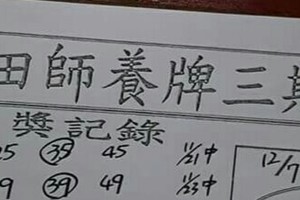 田師養牌三期
獎記錄
25 35 45 11/21中 12/7
29 39 49 11/23中